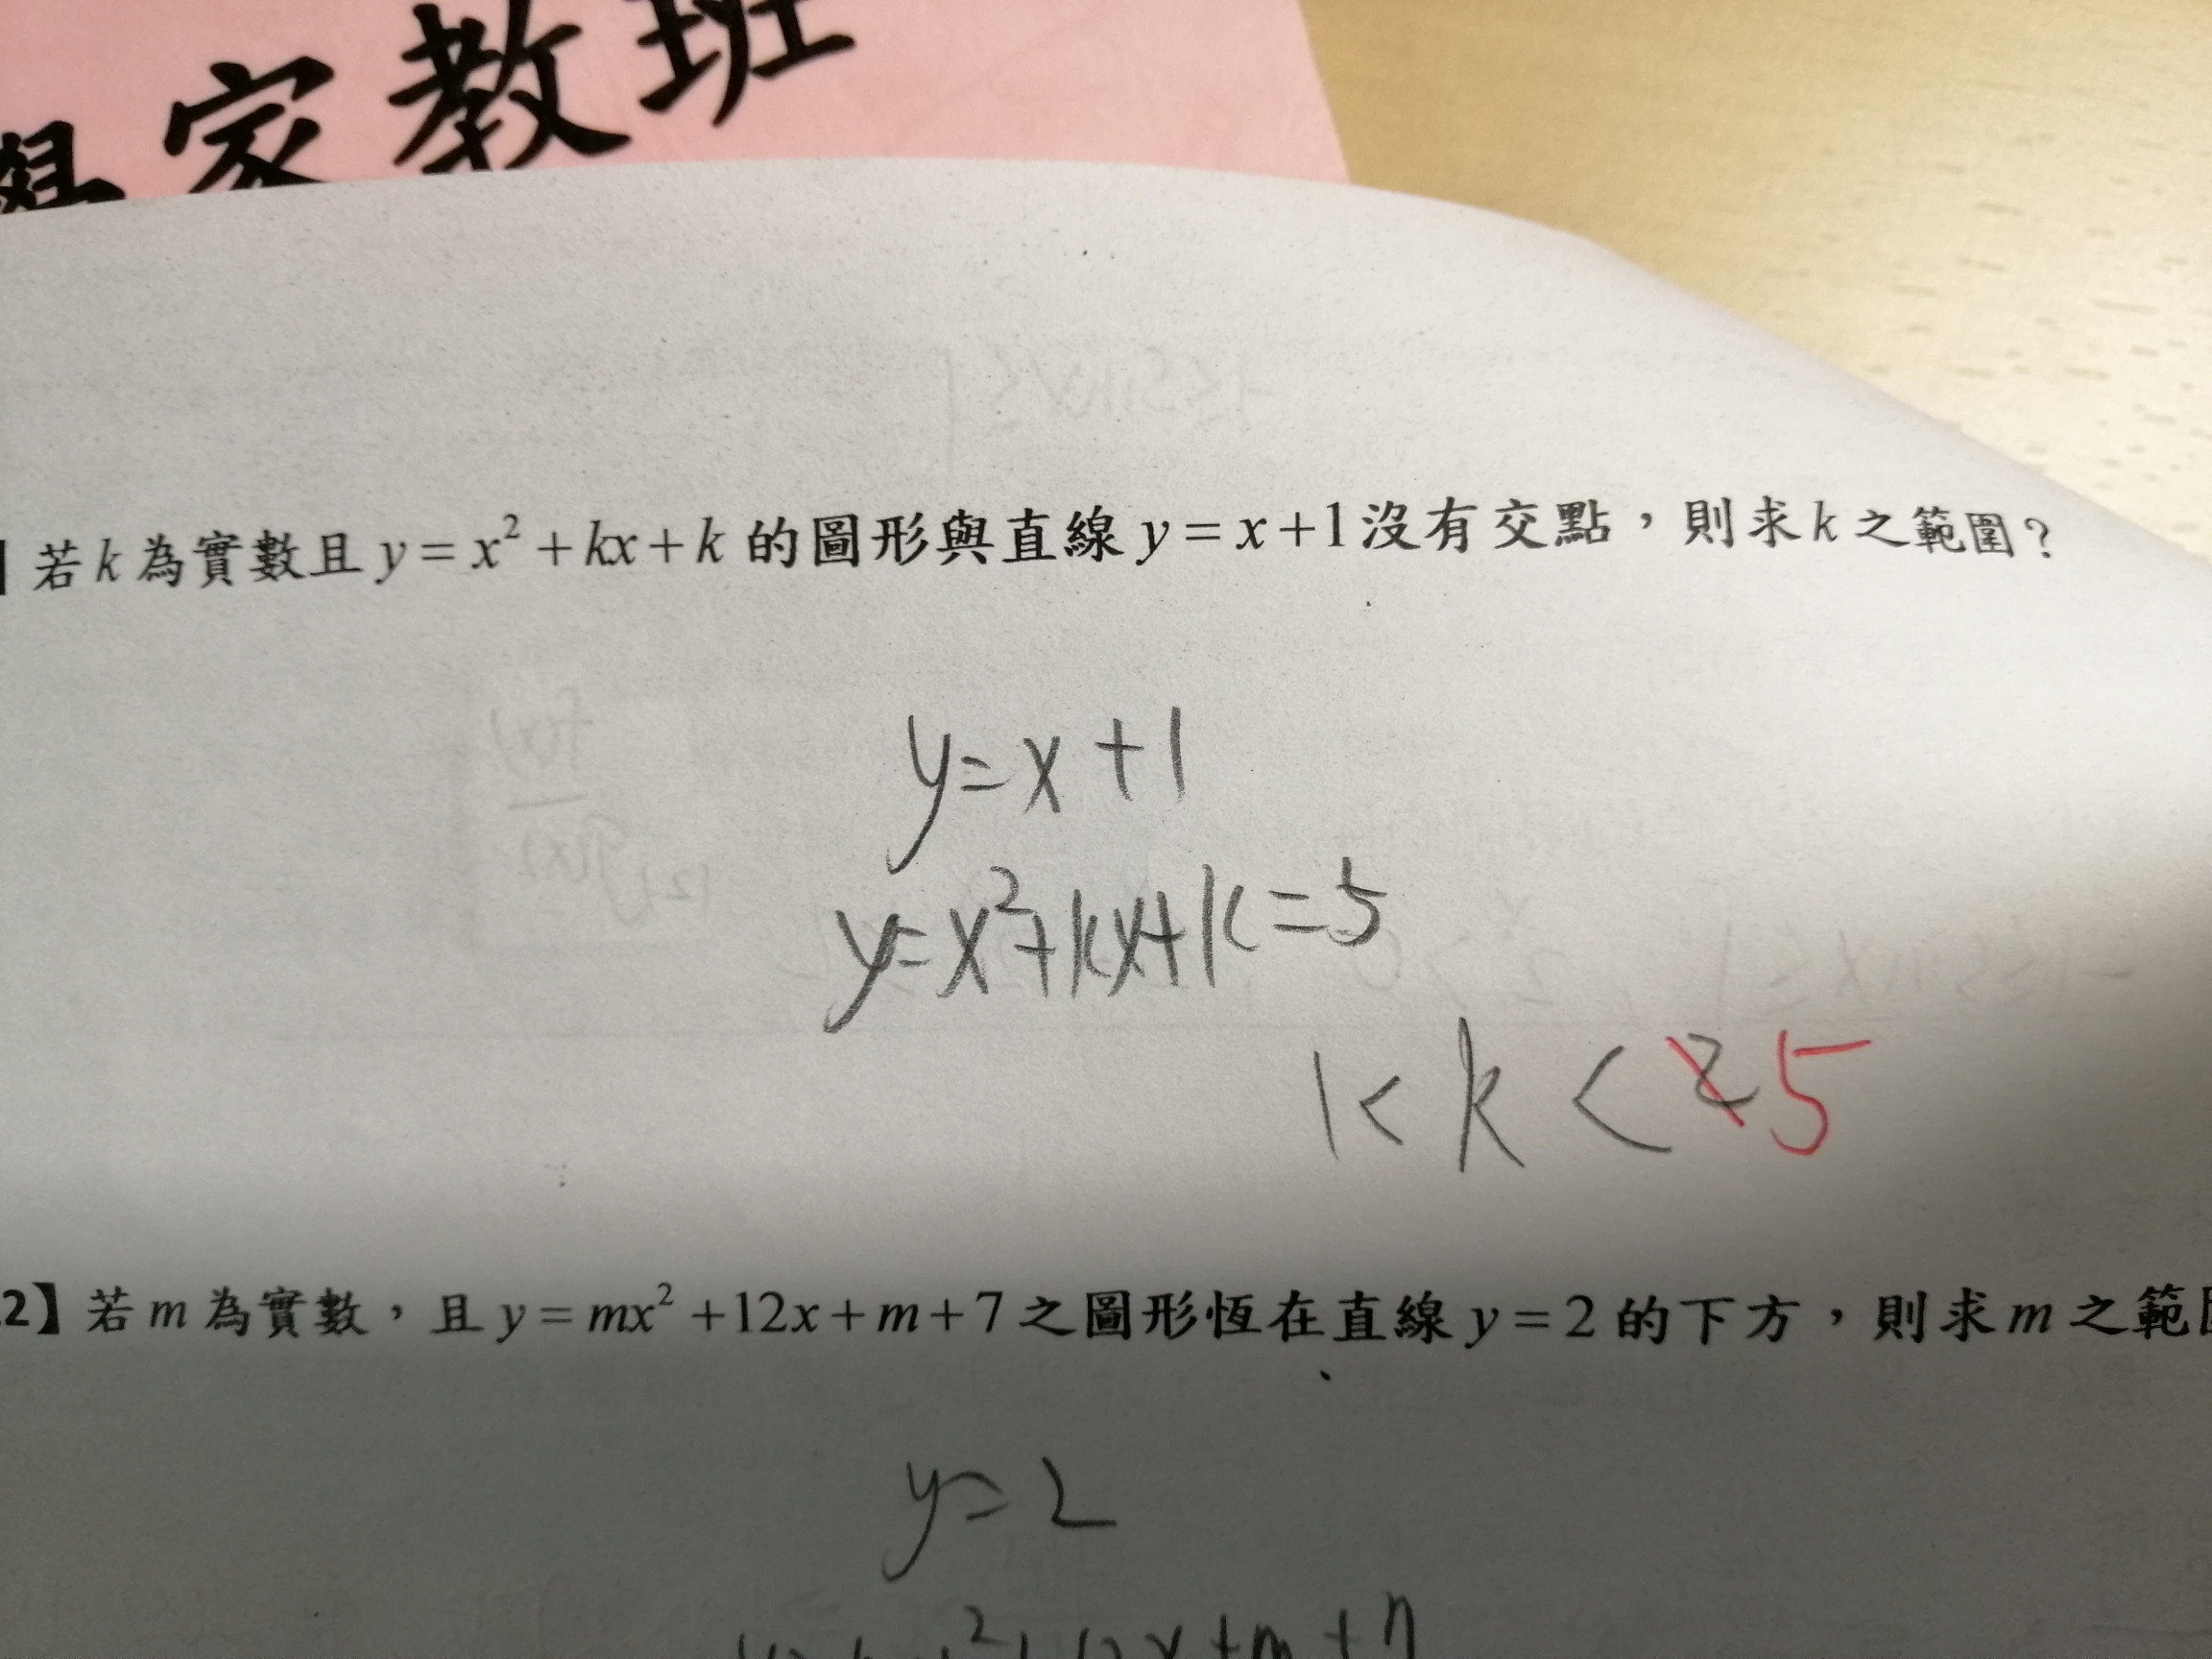 家教班
若k為實數且 y = x² + kx + k 的圖形與直線 y = x+1沒有交點，則求k之範圍？
y=x+1
y=x²+kx+k=5
1<k<2 5
2】若m為實數，且 y = mx² +12x+m+7之圖形恆在直線 y = 2的下方，則求m之範
y=2